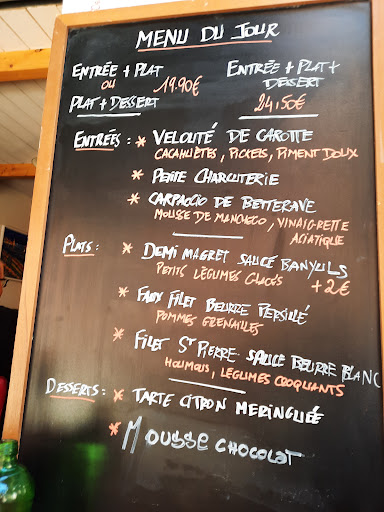 MENU DU JOUR
ENTRÉE + PLAT
OU 19.90€
PLAT + DESSERT
ENTRÉE + PLAT +
DESSERT
24,50€
ENTRÉES : * VELOUTÉ DE CAROTTE
CACAHUÈTES, PICKELS, PIMENT DOUX
* PETITE CHARCUTERIE
* CARPACCIO DE BETTERAVE
MOUSSE DE MANCHEGO, VINAIGRETTE
ASIATIQUE
PLATS : * DEMI MAGRET SAUCE BANYULS
PETITS LÉGUMES GLACÉS +2€
* FAUX FILET BEURRE PERSILLÉ
POMMES GRENAILLES
* FILET ST PIERRE SAUCE BEURRE BLANC
HOUMOUS, LÉGUMES CROQUANTS
DESSERTS : * TARTE CITRON MERINGUÉE
* MOUSSE CHOCOLAT